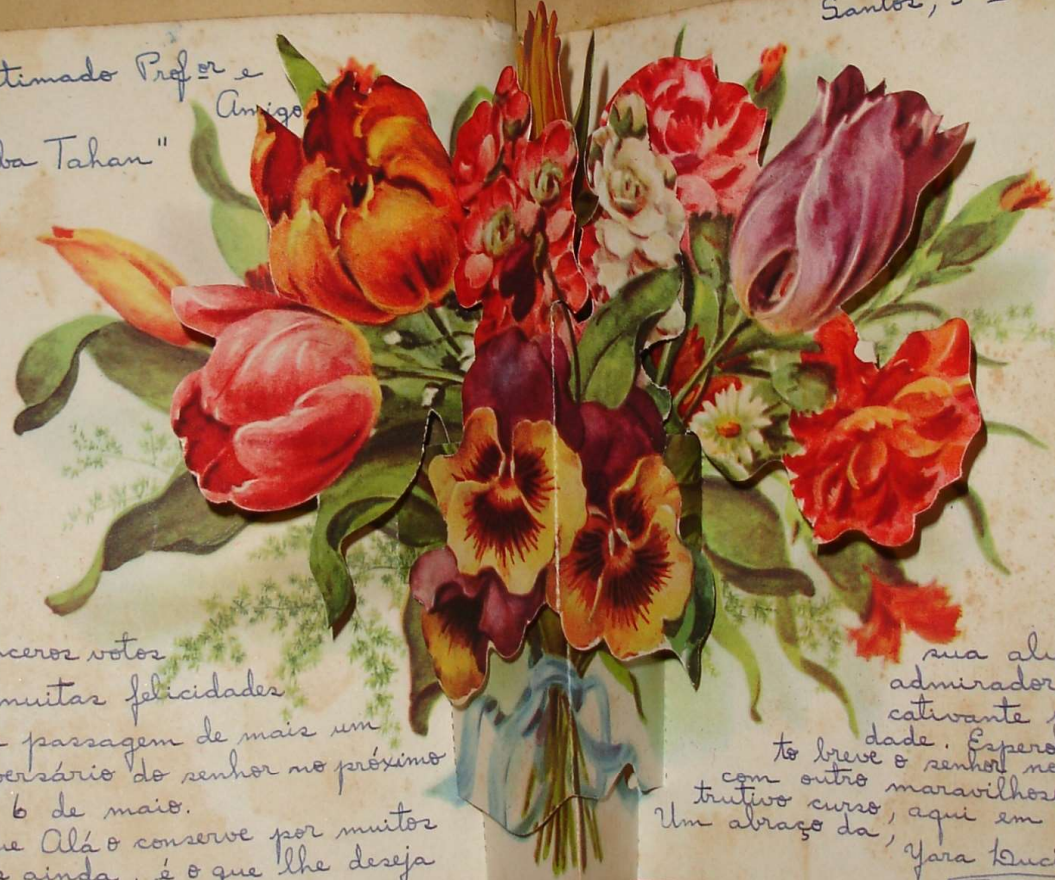 Santos, 5
timado Prof.or e
Amigo
ba Tahan"
ceros votos
muitas felicidades
passagem de mais um
versário do senhor no próximo
6 de maio.
ue Alá o conserve por muitos
ainda, é o que lhe deseja
sua alu
admirador
cativante
dade. Espero
to breve o senhor no
com outro maravilhos
trutivo curso, aqui em
Um abraço da,
Yara Luci